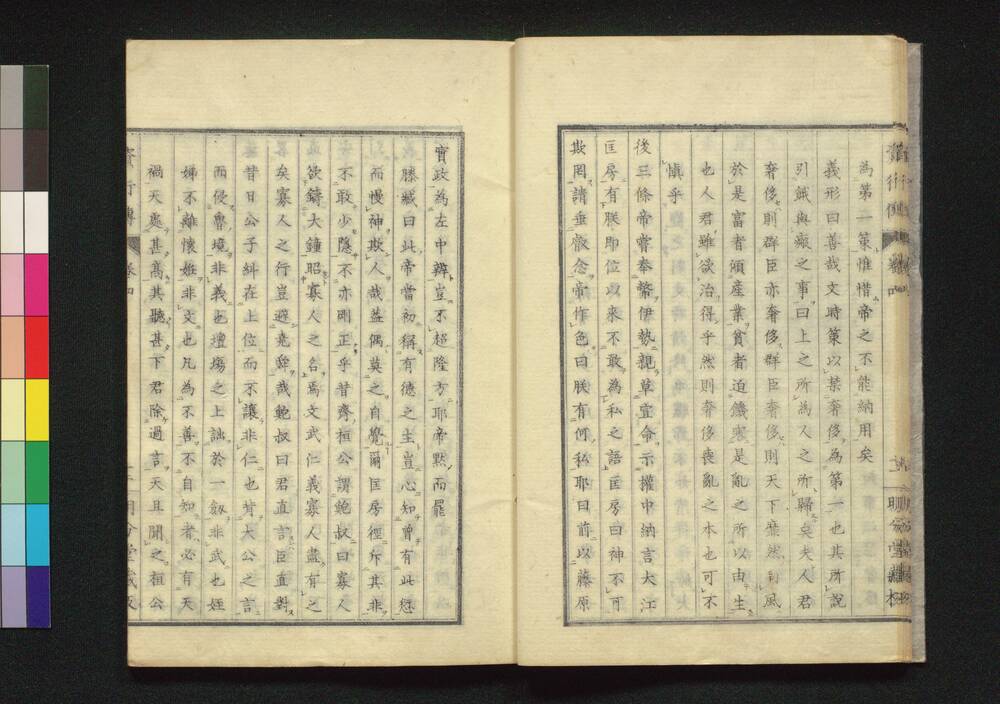 為第一策惟惜帝之不能納用矣
義形曰善哉文時策以禁奢侈為第一也其所說
引餓與寒之事曰上之所為人之所歸矣夫人君
奢侈則群臣亦奢侈群臣奢侈則天下靡然風
於是富者傾産業貧者迫饑寒是亂之所以由生
也人君雖欲治得乎然則奢侈喪亂之本也可不
慎乎
後三條帝嘗奉幣伊勢親草宣命示權中納言大江
匡房有朕即位以來不敢為私之語匡房曰神不可
欺罔請垂叡念帝作色曰朕有何私耶曰前以藤原
實政為左中辨豈不超隆方耶帝默而罷
勝臧曰此帝當初稱有德之主豈心知曾有此愆
而慢神欺人哉蓋偶莫之自覺爾匡房徑斥其非
不敢少隱不亦剛正乎昔齊桓公謂鮑叔曰寡人
欲鑄大鐘昭寡人之名焉文武仁義寡人盡有之
矣寡人之行豈避堯舜哉鮑叔曰君直言臣直對
昔日公子糾在上位而不讓非仁也背大公之言
而侵魯境非義也壇場之上詘於一劔非武也姪
娣不離懷姙非文也凡為不善不自知者必有天
禍天處甚高其聽甚下君除過言天且聞之桓公